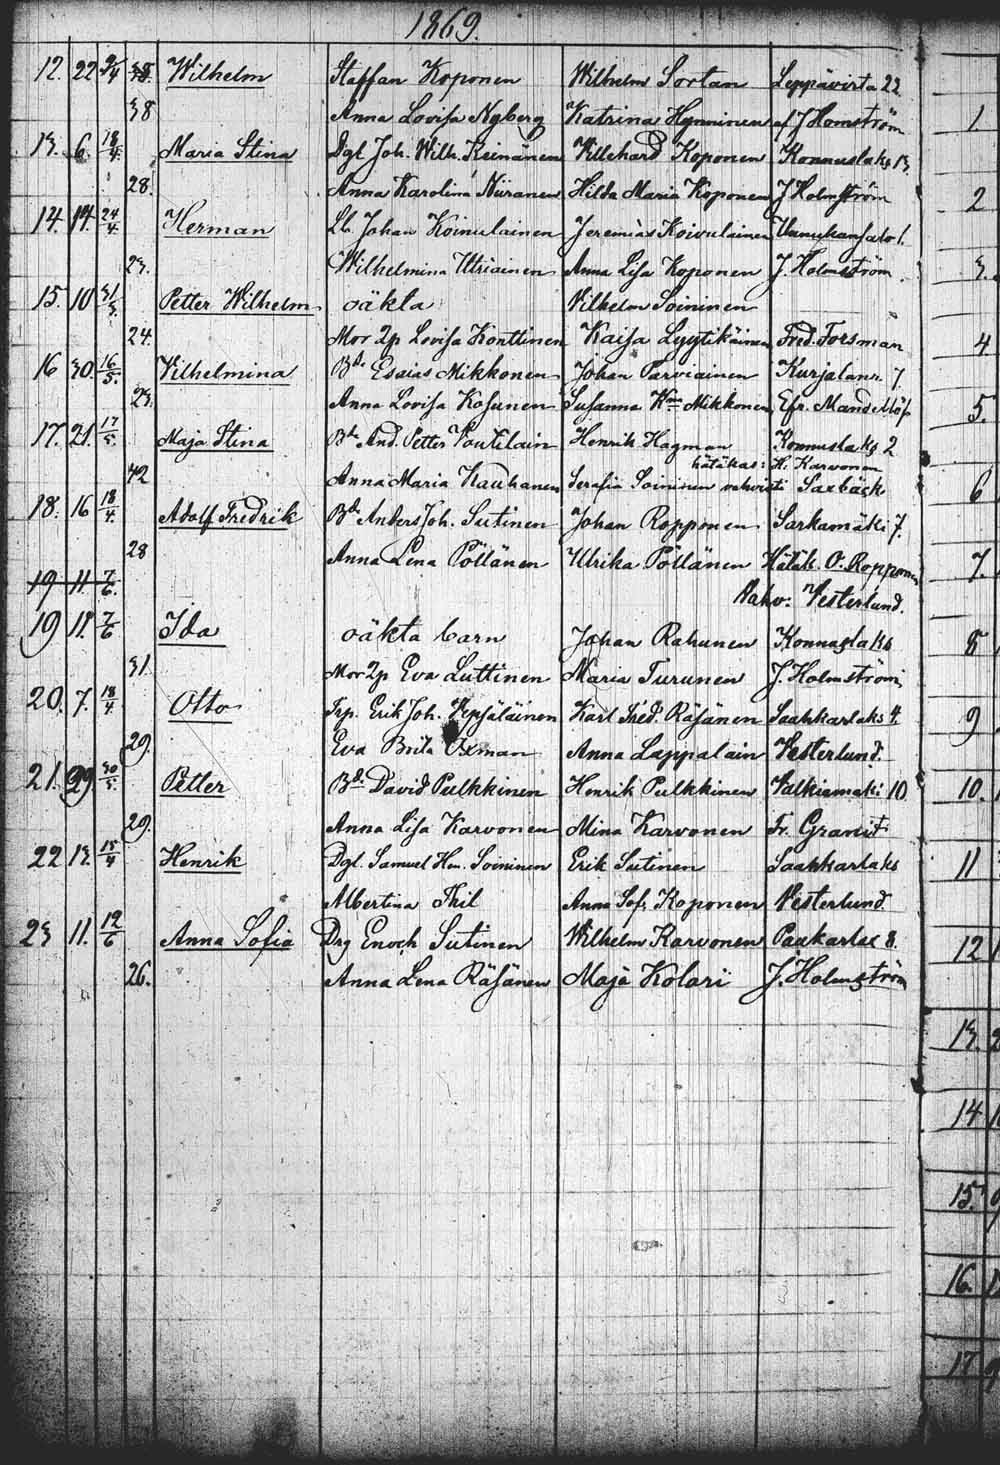 1869.
12. 22 9/4 Wilhelm Staffan Koponen Wilhelm Sortan Leppävirta 23
38 Anna Lovisa Nyberg Katrina Hynninen af J Homström
13. 6. 18/4. Maria Stina Dgl Joh. Wilh. Keinänen Villehard Koponen Konnuslaks 13.
28. Anna Karolina Niiranen Hilda Maria Koponen J Holmström
14. 14. 24/4. Herman Lt. Johan Koinulainen Jeremias Koivulainen 1.
23. Wilhelmina Utriainen Anna Lisa Koponen J. Holmström
15. 10 31/3. Petter Wilhelm oäkta Vilhelm Soininen
24. Mor 2p Lovisa Konttinen Kaisa Lyytikäinen Fred. Forsman
16 30. 16/5. Vilhelmina Bd. Esaias Mikkonen Johan Parviainen Kurjalanr. 7
23. Anna Lovisa Kosunen Susanna Mikkonen Efr. Mandellöf
17. 21. 17/5. Maja Stina And. Petter Voutilain Henrik Hagman Konnuslaks 2
hätäkas: H. Karvonen
42 Anna Maria Kauhanen Serafia Soininen vahvisti Saxbäck
18. 16 18/4. Adolf Fredrik Bd Anders Joh. Sutinen Johan Ropponen Sarkamäki 7.
28 Anna Lena Pöllänen Ulrika Pöllänen Hätäk. O. Ropponen
19 11. 7/6. Vahv. Vesterlund.
19 11. 7/6 Ida oäkta barn Johan Rahunen Konnuslaks
31. Mor 2p Eva Luttinen Maria Turunen J. Holmström
20. 7. 18/4. Otto Trp. Erik Joh. Vepsäläinen Karl Fred. Räsänen Saahkarlaks 4.
29. Eva Brita Oxman Anna Lappalain Vesterlund.
21. 29 30/5. Petter Bd. David Pulkkinen Henrik Pulkkinen Valkiamäki 10
29. Anna Lisa Karvonen Mina Karvonen Fr. Granit
22 13. 15/4 Henrik Dgl. Samuel Hen. Soininen Erik Sutinen Saahkarlaks
Albertina Thil Anna Sofi Koponen Vesterlund.
23 11. 12/6 Anna Sofia Drg Enoch Sutinen Wilhelm Karvonen Paukarlax 8.
26. Anna Lena Räsänen Maja Kolari J. Holmström
1.
2
3.
4
5.
6
7.
8
9
10.
11
12
13.
14
15.
16.
17